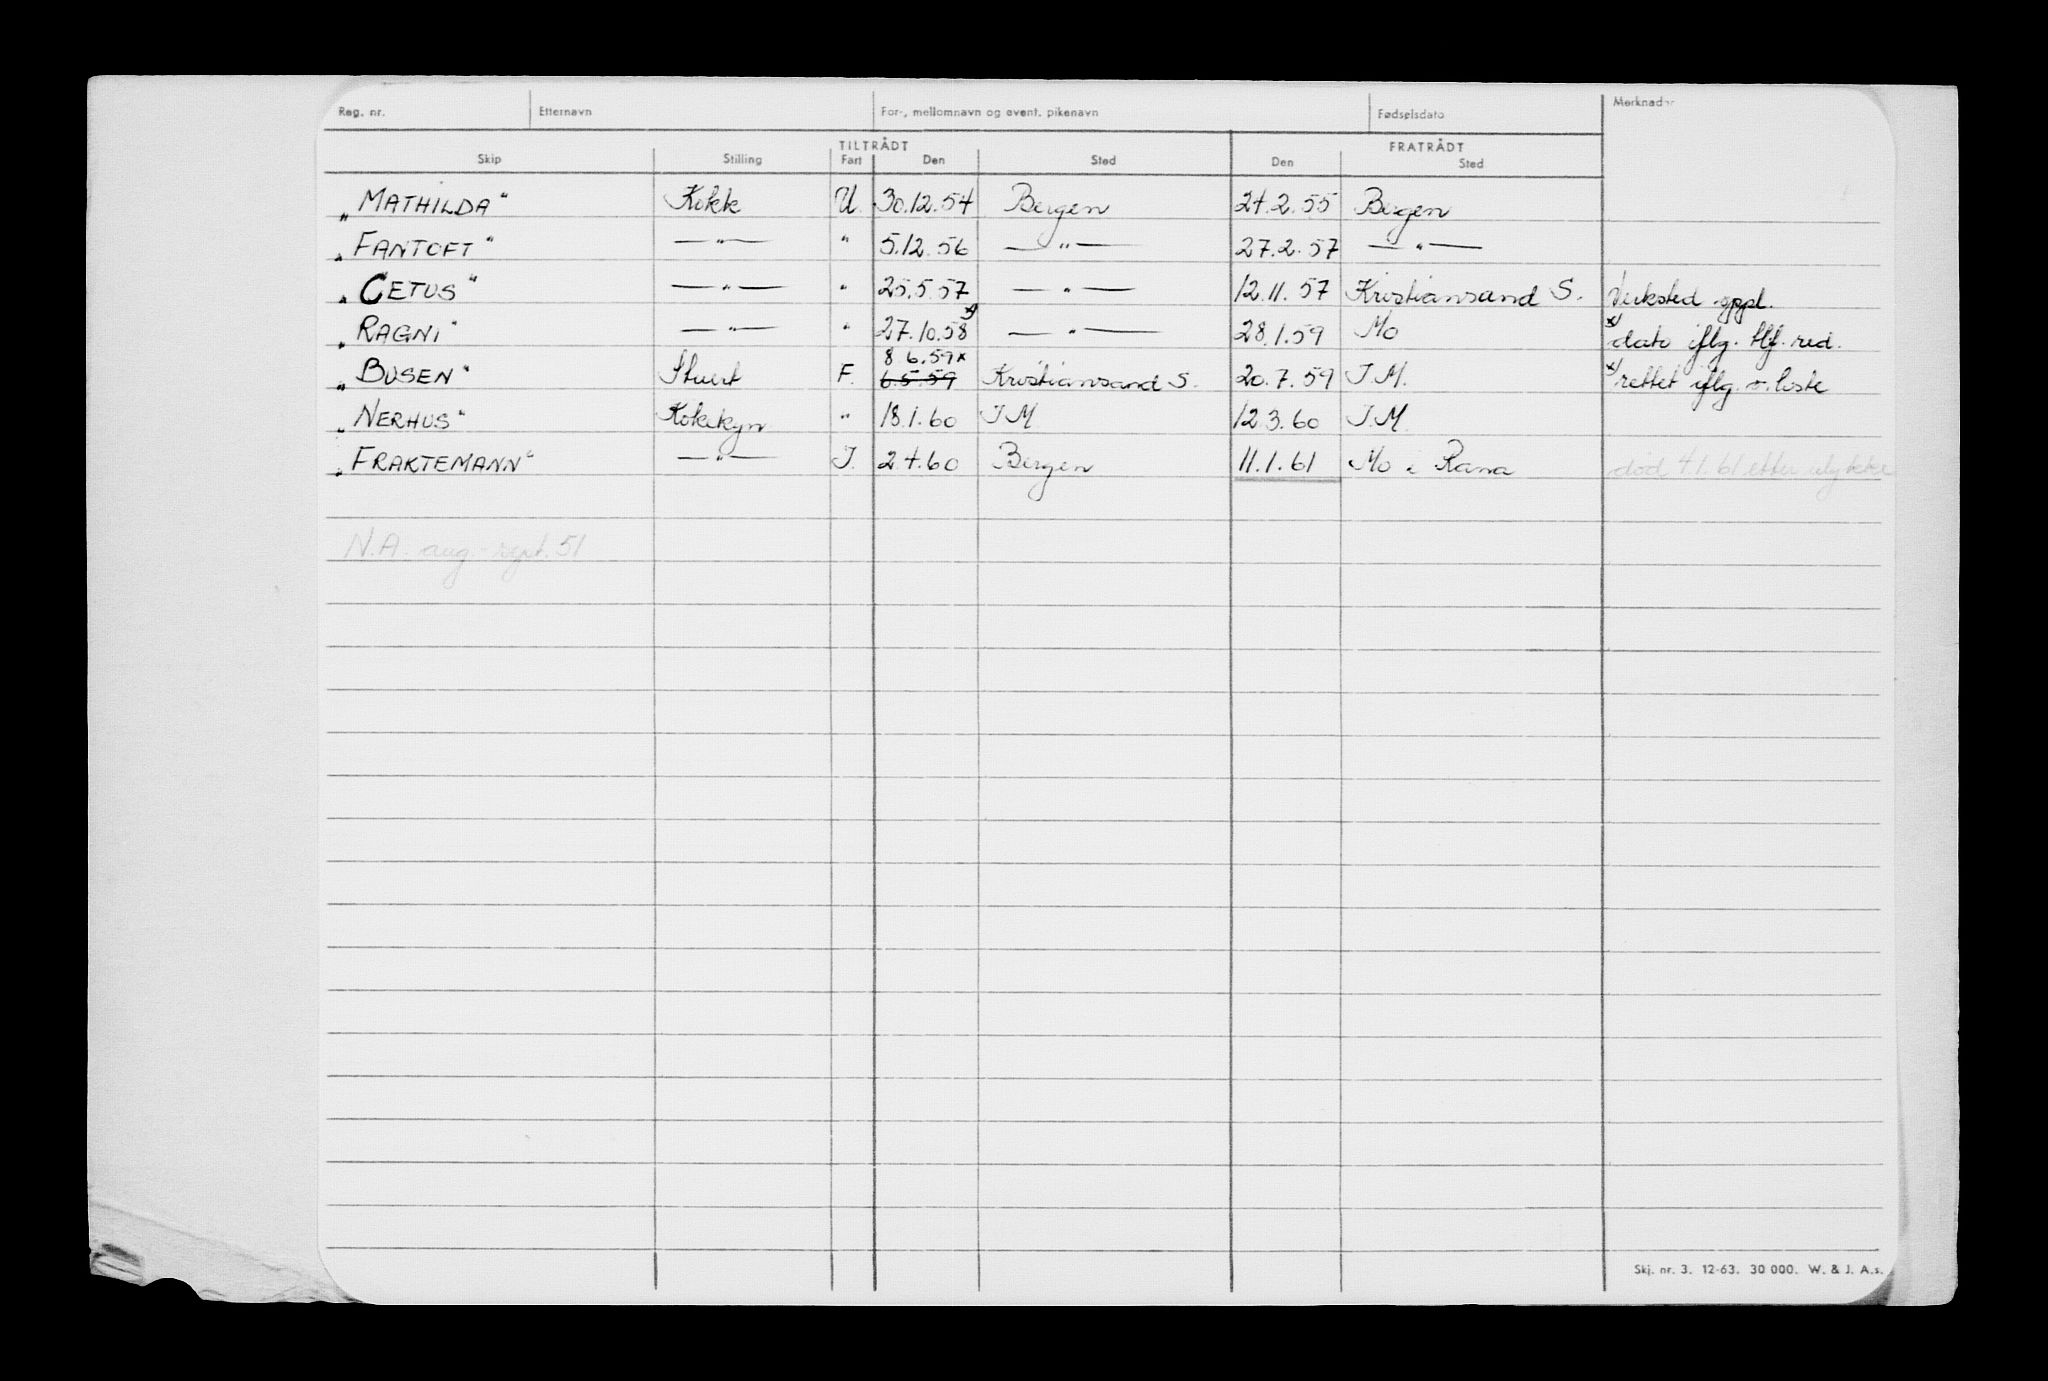 Reg. nr. Etternavn For-, mellomnavn og event. pikenavn Fødselsdato Merknader
TILTRÅDT FRATRÅDT
Skip Stilling Fart Den Sted Den Sted
„MATHILDA" Kokk U. 30.12.54 Bergen 24.2.55 Bergen
„FANTOFT" —"— " 5.12.56 —"— 27.2.57 —"—
„CETUS" —"— " 25.5.57 —"— 12.11.57 Kristiansand S. Verksted oppl.
„RAGNI" —"— " 27.10.58 x) —"— 28.1.59 Mo x) dato iflg. tlf. red.
8 6.59x
„BUSEN" Stuert F. 6.5.59 Kristiansand S. 20.7.59 I.M. x) rettet iflg. m.liste
„NERHUS" Kokk "  18.1.60 I M. 12.3.60 I.M.
„FRAKTEMANN" —"— I. 2.4.60 Bergen 11.1.61 Mo i Rana død 4.1.61 etter ulykke
N.A. aug.-sept. 51
Skj. nr. 3. 12-63. 30 000. W. & J. A.s.